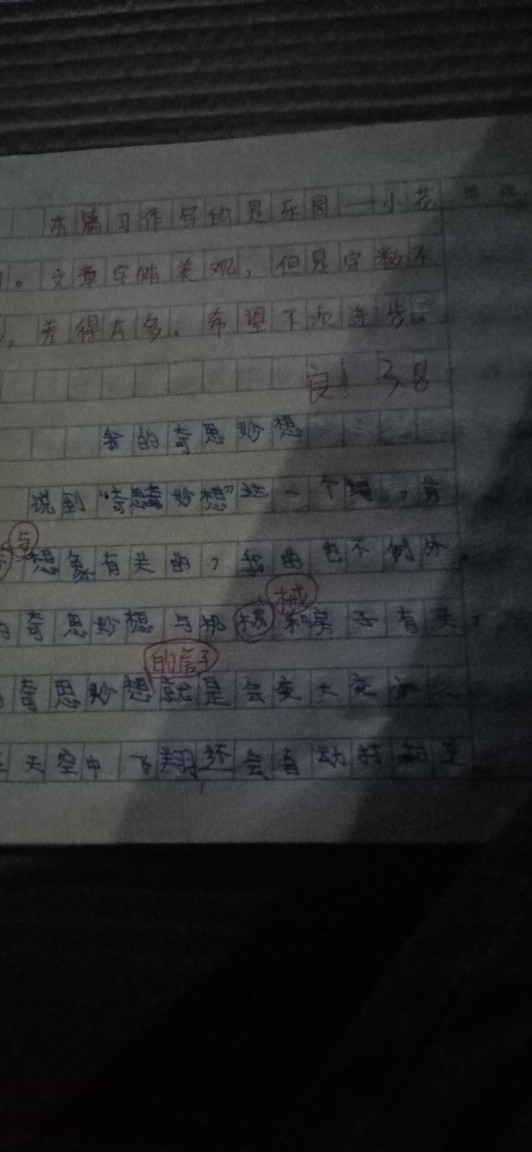 本篇习作写的是乐园一一小花
。文章字体美观，但是字数不
，差得太多。希望下次进步。
良！38
我的奇思妙想
说到“奇思妙想”这一个，
与
想象有关的，我的也不例外
械
奇思妙想与机和房子有关，
的房子
奇思妙想就是会变大变
天空中飞翔还会自动打扫